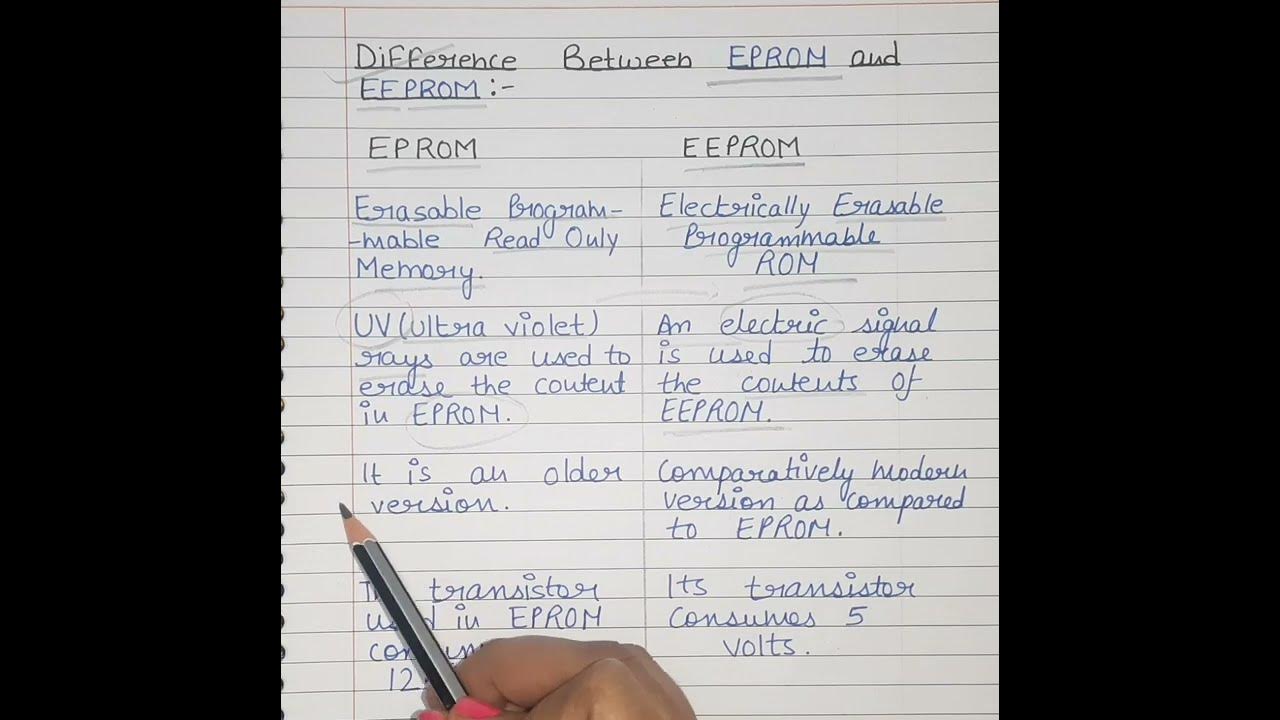 Difference Between EPROM and
EEPROM:-
EPROM
EEPROM
Erasable Program-
-mable Read Only
Memory.
Electrically Erasable
Programmable
ROM
UV (Ultra violet)
rays are used to
erase the content
in EPROM.
An electric signal
is used to erase
the contents of
EEPROM.
It is an older
version.
Comparatively modern
version as compared
to EPROM.
transistor
in EPROM
12
Its transistor
consumes 5
volts.